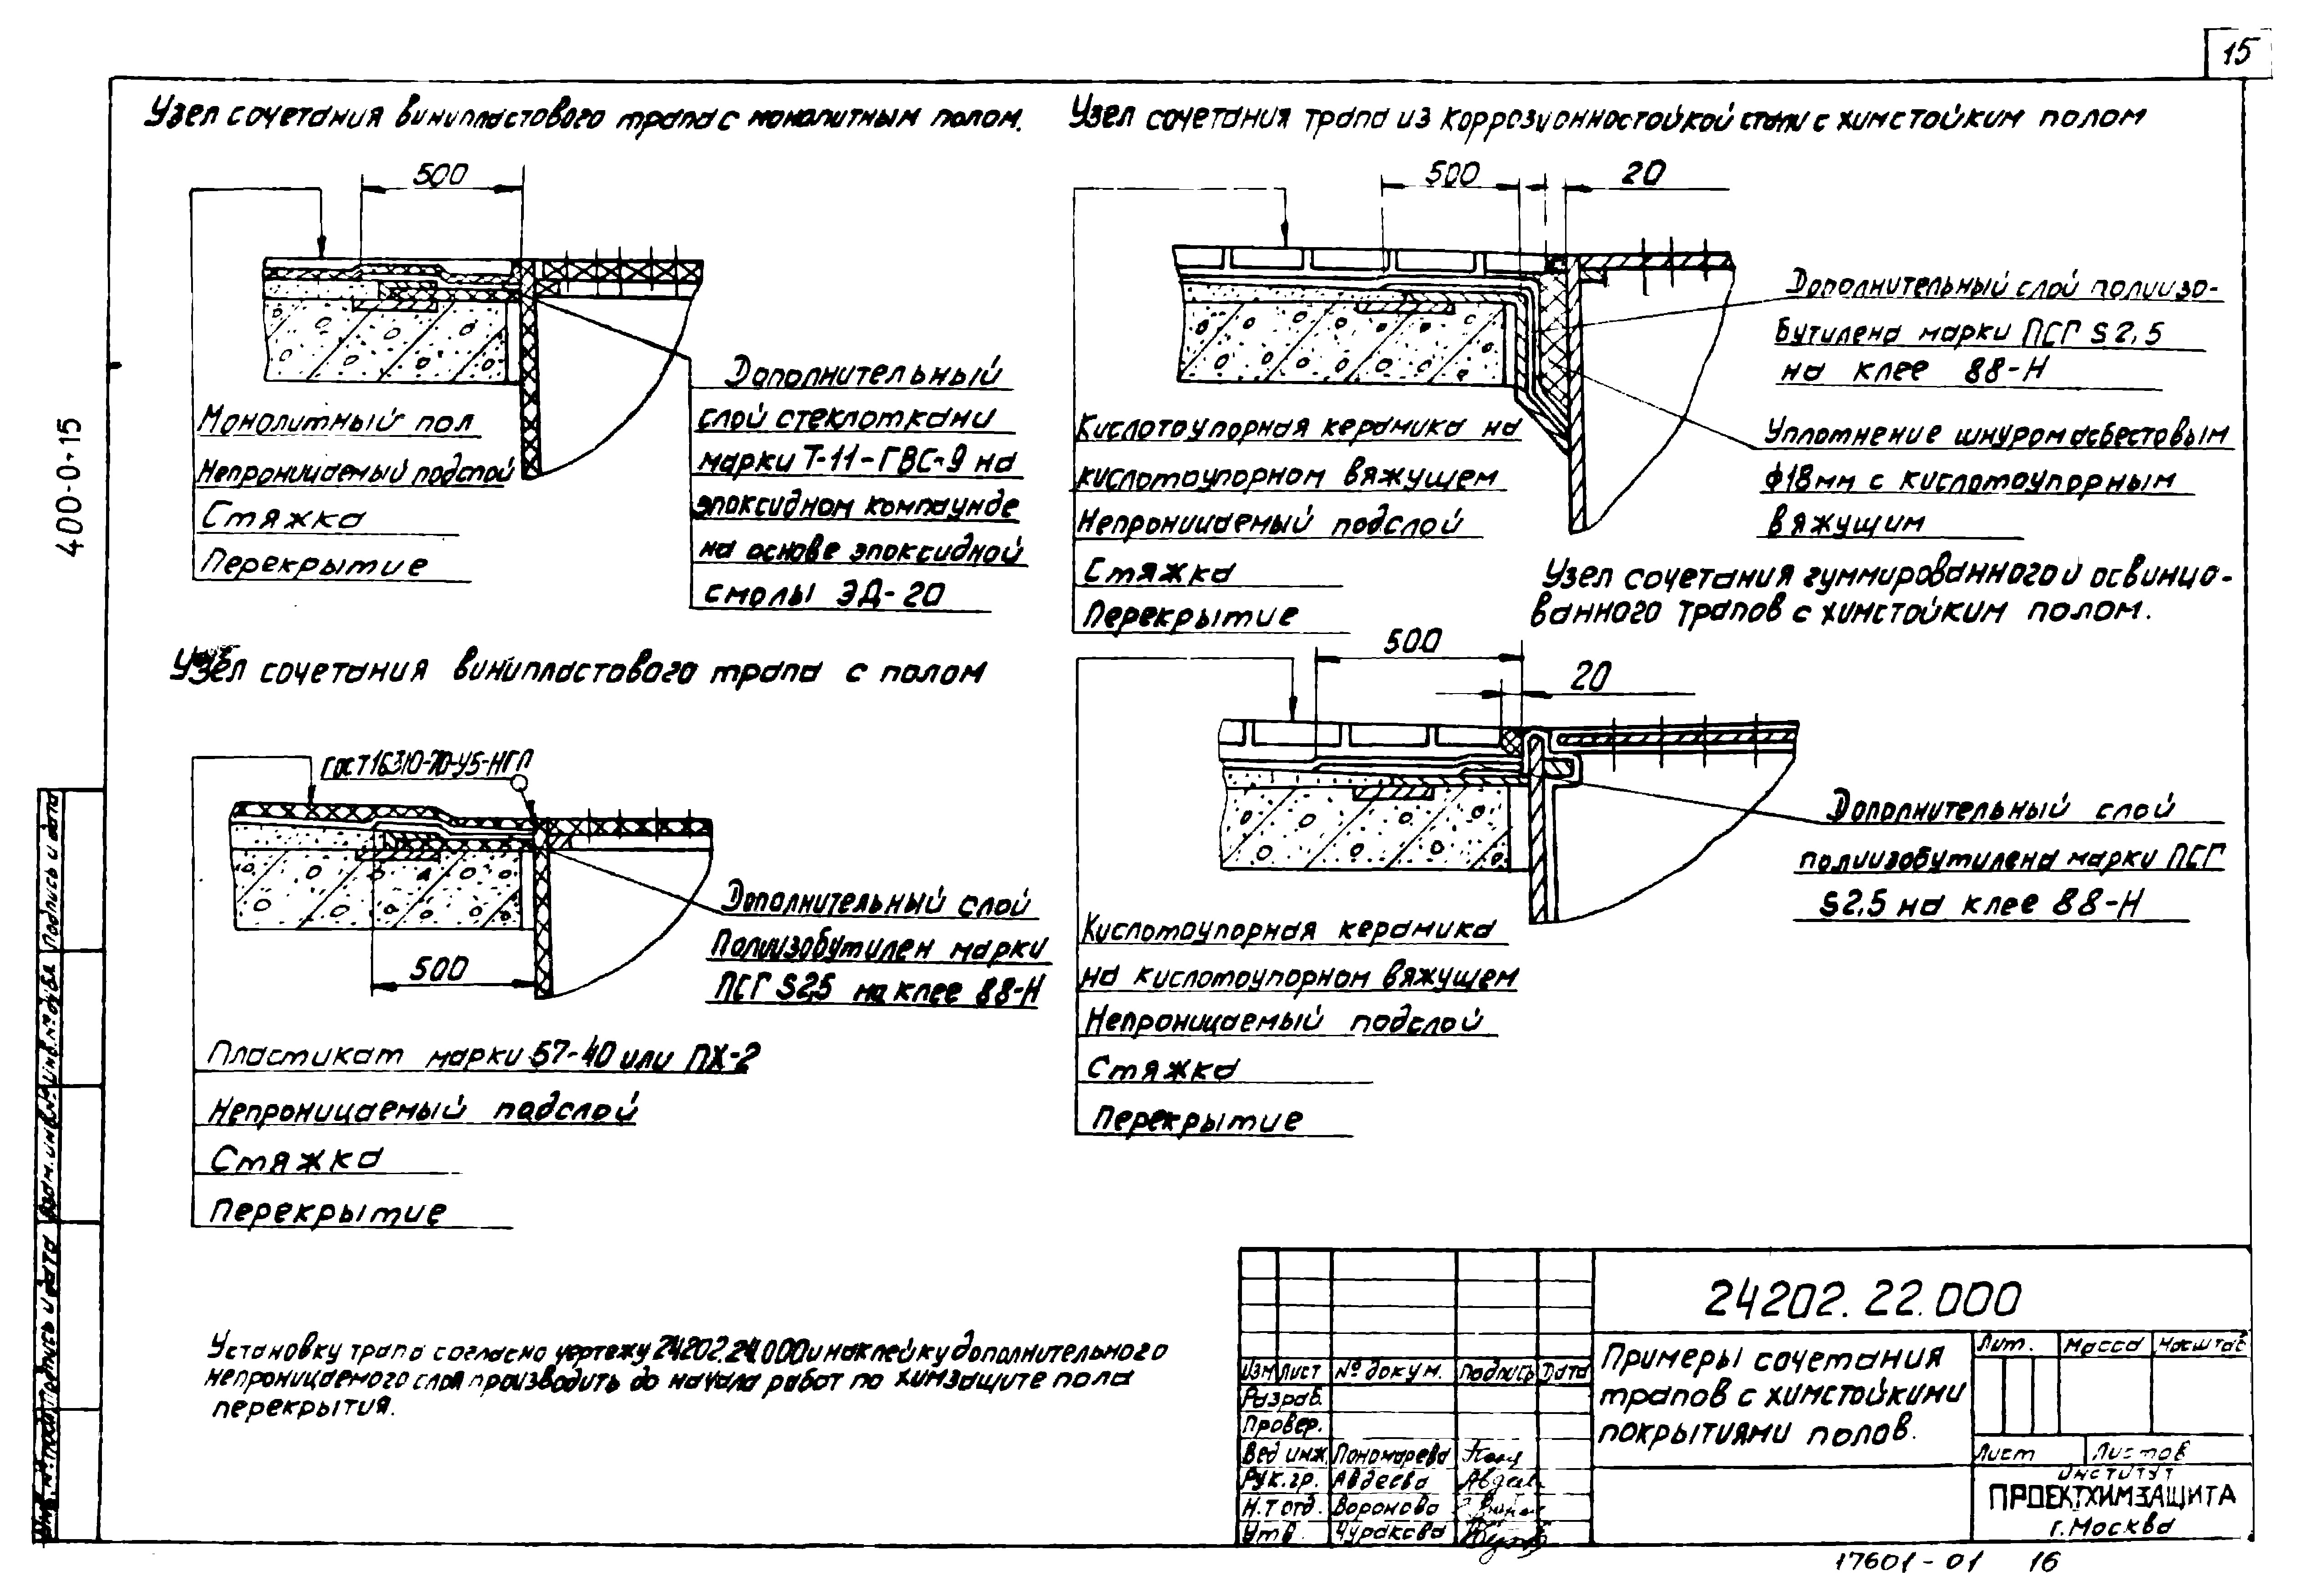 15
400-0-15
Узел сочетания винипластового трапа с монолитным полом.
500
Монолитный пол
Непроницаемый подслой
Стяжка
Перекрытие
Дополнительный
слой стеклоткани
марки Т-11-ГВС-9 на
эпоксидном компаунде
на основе эпоксидной
смолы ЭД-20
Узел сочетания трапа из коррозионностойкой стали с химстойким полом
500
20
Дополнительный слой полиизо-
бутилена марки ПСГ S2,5
на клее 88-Н
Уплотнение шнуром асбестовым
ф18мм с кислотоупорным
вяжущим
Кислотоупорная керамика на
кислотоупорном вяжущем
Непроницаемый подслой
Стяжка
Перекрытие
Узел сочетания винипластового трапа с полом
ГОСТ16310-70-У5-НГП
500
Дополнительный слой
Полиизобутилен марки
ПСГ S2,5 на клее 88-Н
Пластикат марки 57-40 или ПХ-2
Непроницаемый подслой
Стяжка
Перекрытие
Узел сочетания гуммированного и освинцо-
ванного трапов с химстойким полом.
500
20
Дополнительный слой
полиизобутилена марки ПСГ
S2,5 на клее 88-Н
Кислотоупорная керамика
на кислотоупорном вяжущем
Непроницаемый подслой
Стяжка
Перекрытие
Установку трапа согласно чертежу 24202.24.000 и наклейку дополнительного
непроницаемого слоя производить до начала работ по химзащите пола
перекрытия.
24202.22.000
Примеры сочетания
трапов с химстойкими
покрытиями полов.
Лит. Масса Масштаб
Лист Листов
институт
ПРОЕКТХИМЗАЩИТА
г. Москва
Изм Лист № докум. Подпись Дата
Разраб.
Провер.
Вед инж. Пономарева
Рук.гр. Авдеева
Н.т отд. Воронова
Утв. Чуракова
Подпись и дата
Инв.№ дубл.
Взам.инв.№
Подпись и дата
Инв.№ подл.
17601-01 16